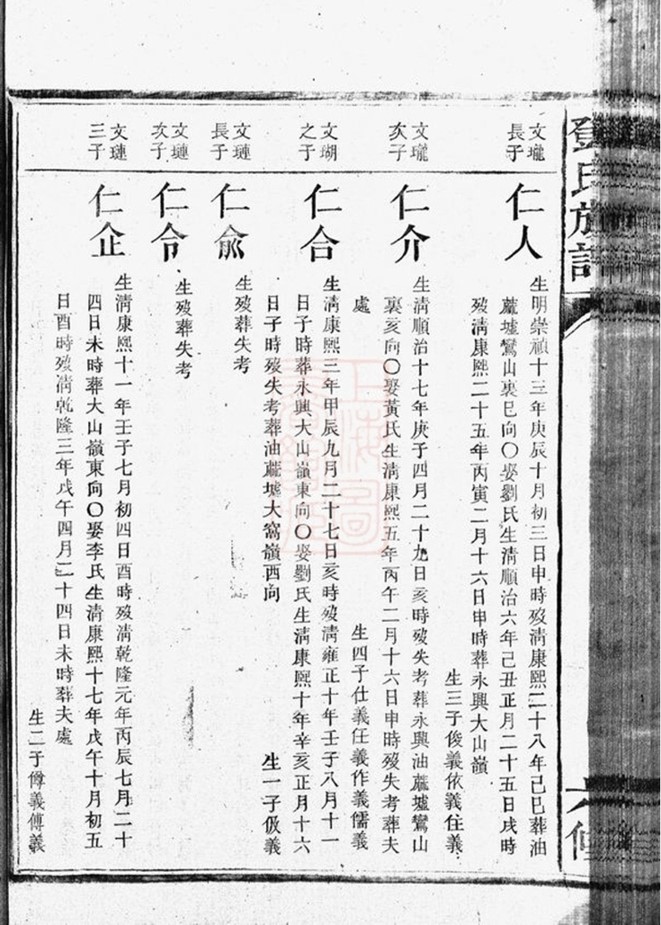 鄧氏族譜
六修
文瓏
長子
仁人
生明崇禎十三年庚辰十月初三日申時歿清康熙二十八年己巳葬油
蔴墟鸞山裏巳向〇娶劉氏生清順治六年己丑正月二十五日戌時
歿清康熙二十五年丙寅二月十六日申時葬永興大山嶺
生三子俊義依義住義
文瓏
次子
仁介
生清順治十七年庚子四月二十九日亥時歿失考葬永興油蔴墟鸞山
裏亥向〇娶黃氏生清康熙五年丙午二月十六日申時歿失考葬夫
處
生四子仕義任義作義儒義
文瑚
之子
仁合
生清康熙三年甲辰九月二十七日亥時歿清雍正十年壬子八月十一
日子時葬永興大山嶺東向〇娶劉氏生清康熙十年辛亥正月十六
日子時歿失考葬油蔴墟大窩嶺西向
生一子伋義
文璉
長子
仁俞
生歿葬失考
文璉
次子
仁令
生歿葬失考
文璉
三子
仁企
生清康熙十一年壬子七月初四日酉時歿清乾隆元年丙辰七月二十
四日未時葬大山嶺東向〇娶李氏生清康熙十七年戊午十月初五
日酉時歿清乾隆三年戊午四月二十四日未時葬夫處
生二子僔義傅義